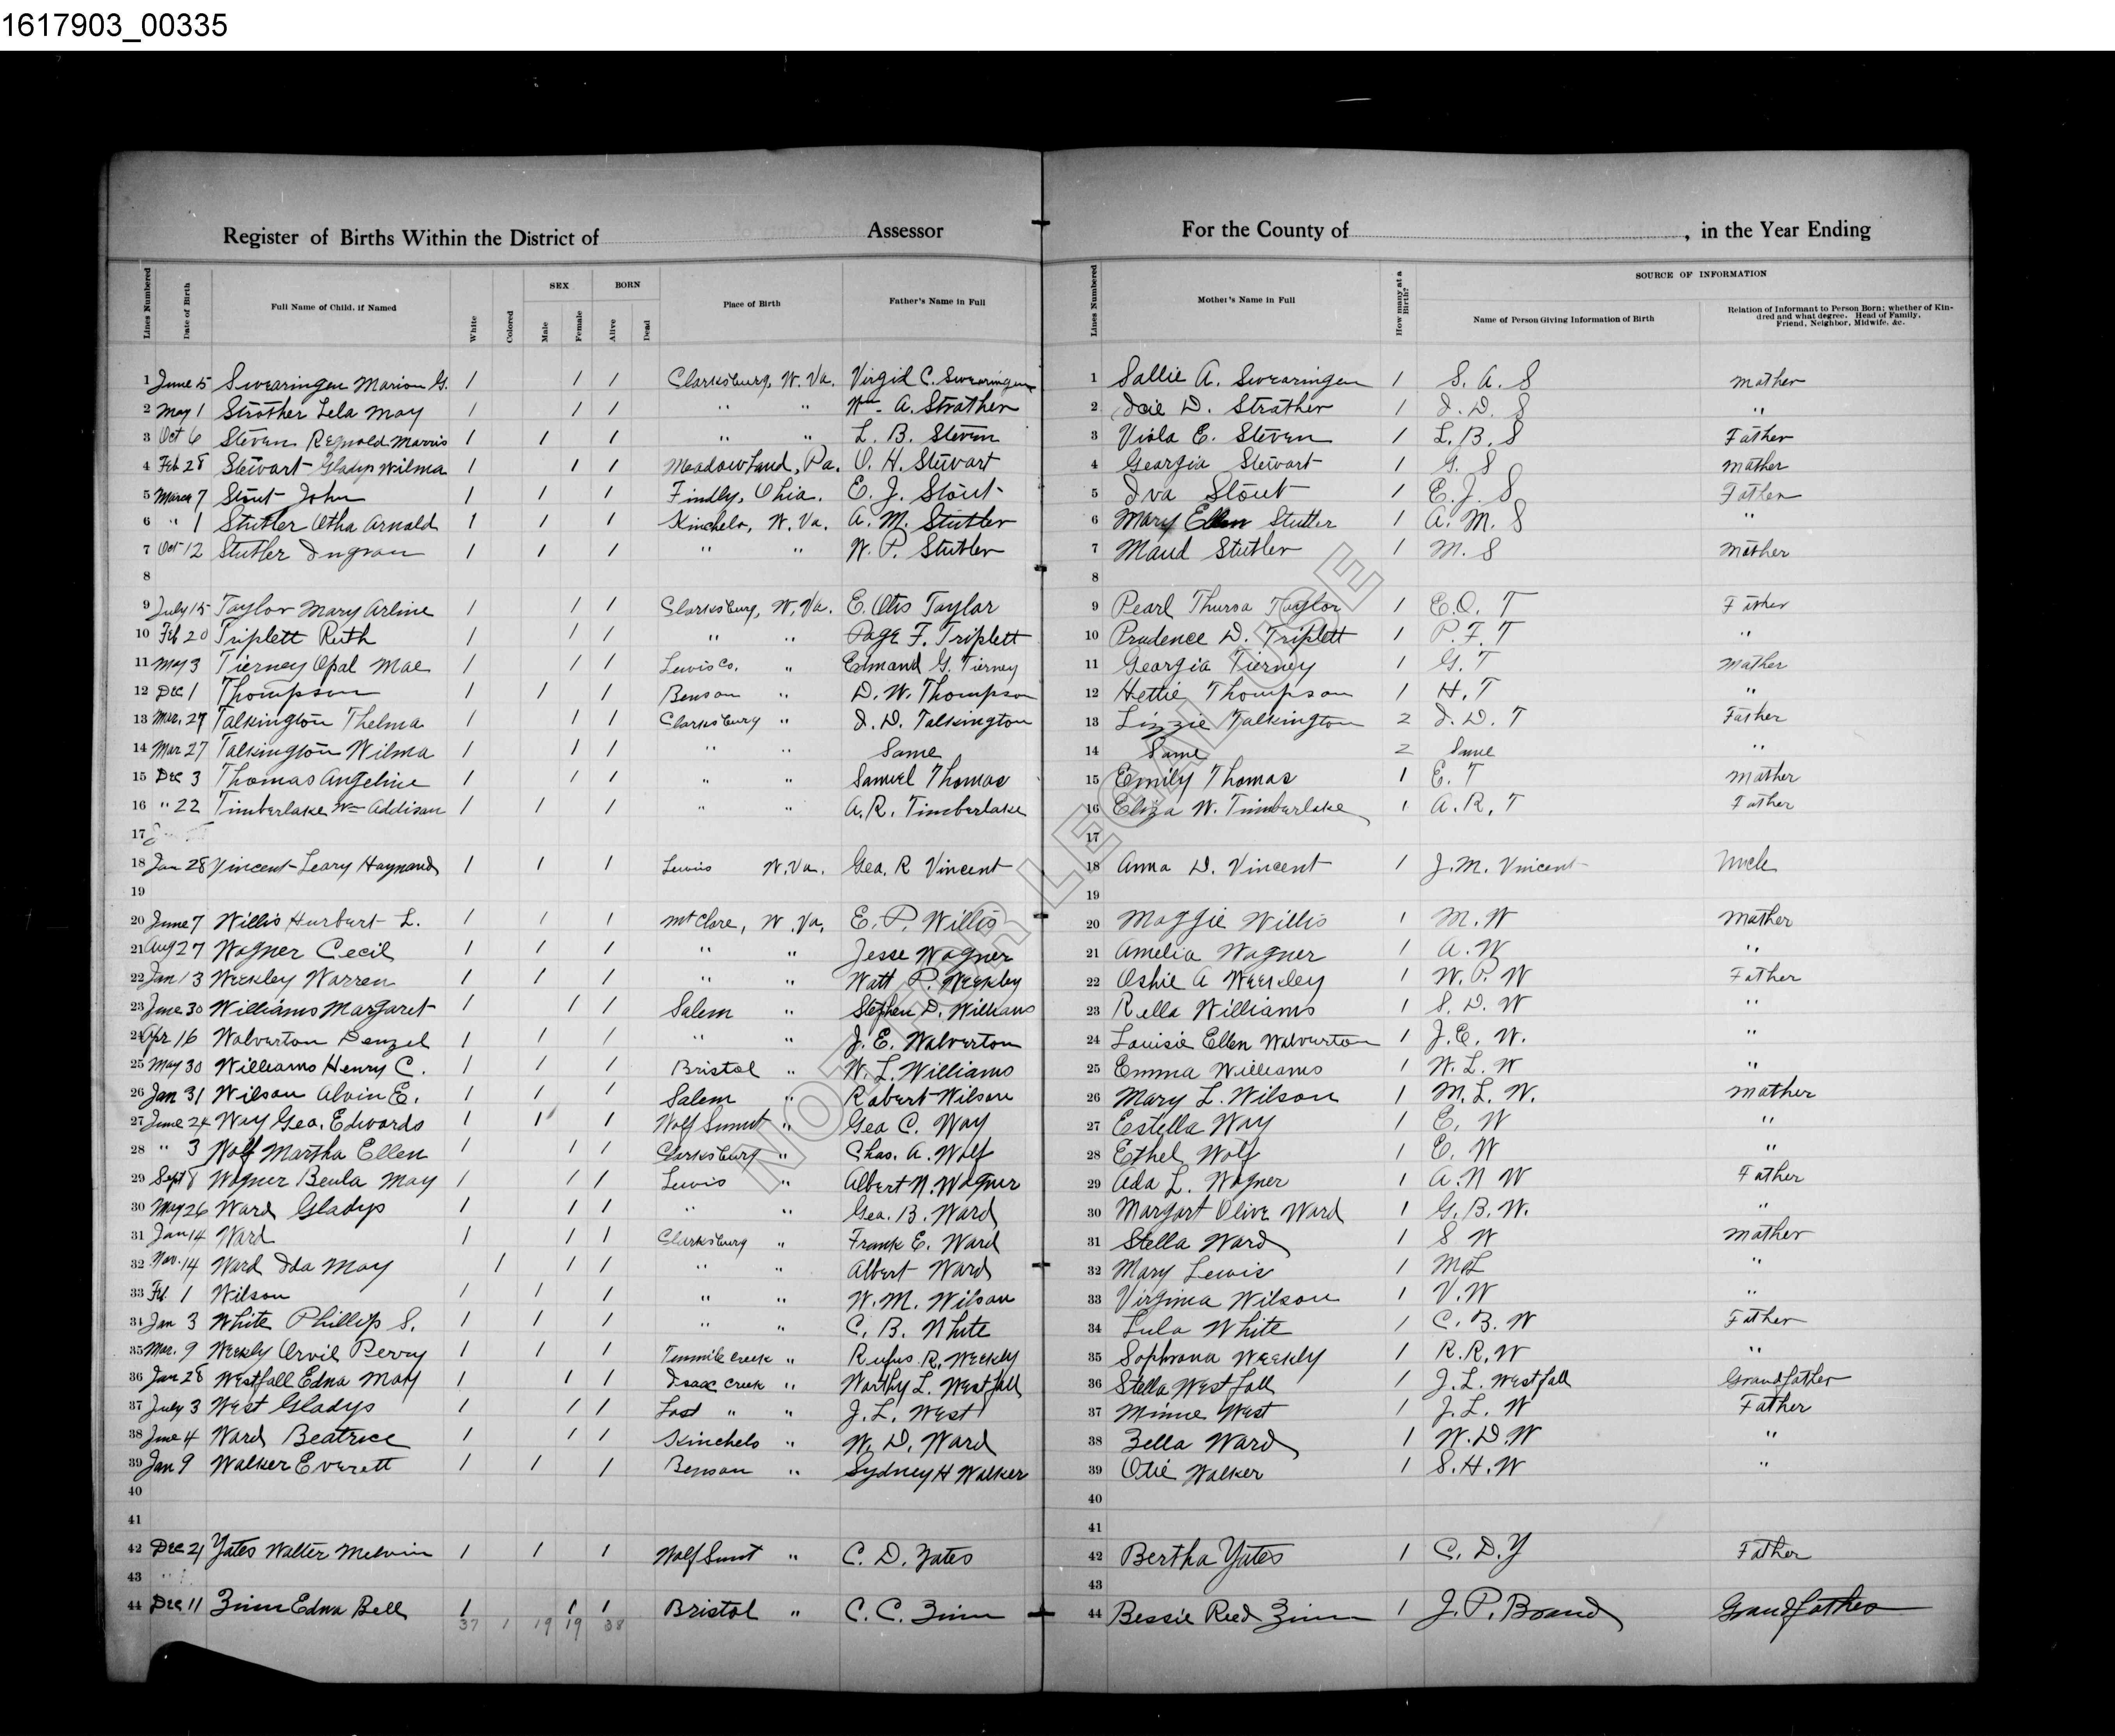 1617903_00335
Register of Births Within the District of Assessor For the County of , in the Year Ending
Lines Numbered Date of Birth Full Name of Child, if Named White Colored SEX Male Female BORN Alive Dead Place of Birth Father's Name in Full Lines Numbered Mother's Name in Full How many at a Birth? SOURCE OF INFORMATION Name of Person Giving Information of Birth Relation of Informant to Person Born; whether of Kindred and what degree. Head of Family, Friend, Neighbor, Midwife, &c.
1 June 15 Swearingen Marion G. 1 1 1 Clarksburg, W. Va. Virgil C. Swearingen 1 Sallie A. Swearingen 1 S. A. S Mother
2 May 1 Strother Lela May 1 1 1 " " Wm A. Strother 2 D. Strother 1 I. D. S "
3 Oct 6 Steven Regnold Morris 1 1 1 " " L. B. Steven 3 Viola E. Steven 1 L. B. S Father
4 Feb 28 Stewart Gladys Wilma 1 1 1 Meadowland, Pa. O. H. Stewart 4 Georgia Stewart 1 G. S Mother
5 March 7 Stout John 1 1 1 Findly, Ohio. E. J. Stout 5 Iva Stout 1 E. J. S Father
6 " 1 Stutler Otha Arnold 1 1 1 Kinchelo, W. Va. A. M. Stutler 6 Mary Ellen Stutler 1 A. M. S "
7 Oct 12 Stutler Ingram 1 1 1 " " W. P. Stutler 7 Maud Stutler 1 M. S Mother
8 8
9 July 15 Taylor Mary Arline 1 1 1 Clarksburg, W. Va. E. Otis Taylor 9 Pearl Thursa Taylor 1 E. O. T Father
10 Feb 20 Triplett Ruth 1 1 1 " " Page F. Triplett 10 Prudence D. Triplett 1 P. F. T "
11 May 3 Tierney Opal Mae 1 1 1 Lewis Co. " Edmand G. Tierney 11 Georgia Tierney 1 G. T Mother
12 Dec 1 Thompson 1 1 1 Benson " D. W. Thompson 12 Hettie Thompson 1 H. T "
13 Mar. 27 Talkington Thelma 1 1 1 Clarksburg " I. D. Talkington 13 Lizzie Talkington 2 I. D. T Father
14 Mar 27 Talkington Wilma 1 1 1 " " Same 14 Same 2 Same "
15 Dec 3 Thomas Angeline 1 1 1 " " Samuel Thomas 15 Emily Thomas 1 E. T Mother
16 " 22 Timberlake Wm Addison 1 1 1 " " A. R. Timberlake 16 Eliza W. Timberlake 1 A. R. T Father
17 17
18 Jan 28 Vincent Leary Haymond 1 1 1 Lewis W. Va. Geo. R Vincent 18 Anna D. Vincent 1 J. M. Vincent Uncle
19 19
20 June 7 Willis Hurburt L. 1 1 1 Mt Clare, W. Va. E. P. Willis 20 Maggie Willis 1 M. W Mother
21 Aug 27 Wagner Cecil 1 1 1 " " Jesse Wagner 21 Amelia Wagner 1 A. W "
22 Jan 13 Weekley Warren 1 1 1 " " Watt P. Weekley 22 Oshie A Weekley 1 W. P. W Father
23 June 30 Williams Margaret 1 1 1 Salem " Stephen D. Williams 23 Rella Williams 1 S. D. W "
24 Apr 16 Wolverton Denzel 1 1 1 " " J. E. Wolverton 24 Louisie Ellen Wolverton 1 J. E. W. "
25 May 30 Williams Henry C. 1 1 1 Bristol " W. L. Williams 25 Emma Williams 1 W. L. W "
26 Jan 31 Wilson Alvin E. 1 1 1 Salem " Robert Wilson 26 Mary L. Wilson 1 M. L. W. Mother
27 June 24 Way Geo. Edwards 1 1 1 Wolf Summit " Geo C. Way 27 Estella Way 1 E. W "
28 " 3 Wolf Martha Ellen 1 1 1 Clarksburg " Chas. A. Wolf 28 Ethel Wolf 1 E. W "
29 Sept 8 Wagner Beula May 1 1 1 Lewis " Albert N. Wagner 29 Ada L. Wagner 1 A. N W Father
30 May 26 Ward Gladys 1 1 1 " " Geo. B. Ward 30 Margart Olive Ward 1 G. B. W. "
31 Jan 14 Ward 1 1 1 Clarksburg " Frank E. Ward 31 Stella Ward 1 S W Mother
32 Nov. 14 Ward Ida May 1 1 1 " " Albert Ward 32 Mary Lewis 1 M L "
33 Feb. 1 Wilson 1 1 1 " " W. M. Wilson 33 Virginia Wilson 1 V. W "
34 Jan 3 White Phillip S. 1 1 1 " " C. B. White 34 Lula White 1 C. B. W Father
35 Mar. 9 Weekly Orvil Perry 1 1 1 Tenmile Creek " Rufus R. Weekly 35 Sophrona Weekly 1 R. R. W "
36 Jan 28 Westfall Edna May 1 1 1 Isaac Creek " Worthy L. Westfall 36 Stella Westfall 1 J. L. Westfall Grandfather
37 July 3 West Gladys 1 1 1 Lost " " J. L. West 37 Minnie West 1 J. L. W Father
38 June 4 Ward Beatrice 1 1 1 Kinchelo " W. D. Ward 38 Zella Ward 1 W. D. W "
39 Jan 9 Walker Everett 1 1 1 Benson " Sydney H Walker 39 Otie Walker 1 S. H. W "
40 40
41 41
42 Dec 21 Yates Walter Melvin 1 1 1 Wolf Sumt " C. D. Yates 42 Bertha Yates 1 C. D. Y Father
43 43
44 Dec 11 Zinn Edna Bell 1 1 1 Bristol " C. C. Zinn 44 Bessie Reed Zinn 1 J. P. Brand Grandfather
37 1 19 19 38
NOT FOR LEGAL USE